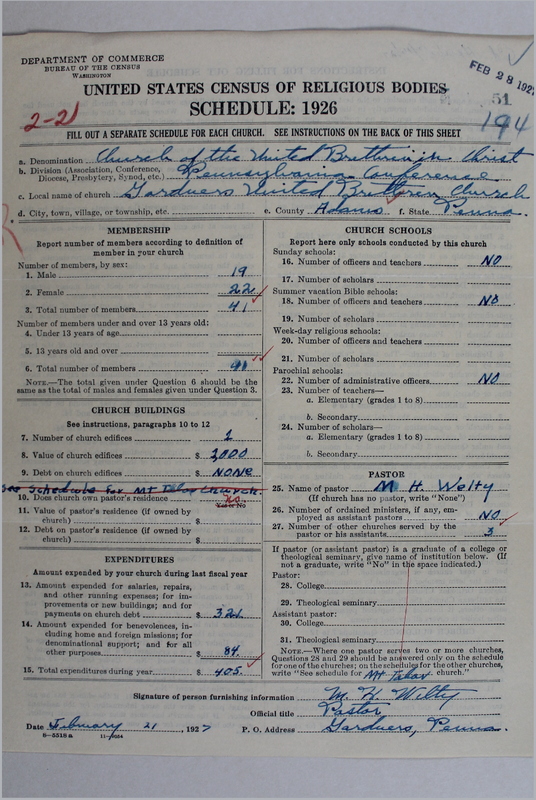 DEPARTMENT OF COMMERCE
BUREAU OF THE CENSUS
WASHINGTON
FEB 28 192
UNITED STATES CENSUS OF RELIGIOUS BODIES
51
SCHEDULE: 1926
2-21
194
FILL OUT A SEPARATE SCHEDULE FOR EACH CHURCH. SEE INSTRUCTIONS ON THE BACK OF THIS SHEET
a. Denomination Church of the United Brethren in Christ
b. Division (Association, Conference, Diocese, Presbytery, Synod, etc.) Pennsylvania Conference
c. Local name of church Gardners United Brethren Church
d. City, town, village, or township, etc. e. County Adams f. State Penna.
MEMBERSHIP
Report number of members according to definition of member in your church
Number of members, by sex:
1. Male 19
2. Female 22
3. Total number of members 41
Number of members under and over 13 years old:
4. Under 13 years of age
5. 13 years old and over
6. Total number of members 41
NOTE.—The total given under Question 6 should be the same as the total of males and females given under Question 3.
CHURCH BUILDINGS
See instructions, paragraphs 10 to 12
7. Number of church edifices 1
8. Value of church edifices $ 2,000
9. Debt on church edifices $ NONE
See Schedule for Mt Church.
10. Does church own pastor's residence? No
Yes or No
11. Value of pastor's residence (if owned by church) $
12. Debt on pastor's residence (if owned by church) $
EXPENDITURES
Amount expended by your church during last fiscal year
13. Amount expended for salaries, repairs, and other running expenses; for improvements or new buildings; and for payments on church debt $ 321
14. Amount expended for benevolences, including home and foreign missions; for denominational support; and for all other purposes $ 84
15. Total expenditures during year $ 405
CHURCH SCHOOLS
Report here only schools conducted by this church
Sunday schools:
16. Number of officers and teachers NO
17. Number of scholars
Summer vacation Bible schools:
18. Number of officers and teachers NO
19. Number of scholars
Week-day religious schools:
20. Number of officers and teachers
21. Number of scholars
Parochial schools:
22. Number of administrative officers NO
23. Number of teachers—
a. Elementary (grades 1 to 8)
b. Secondary
24. Number of scholars—
a. Elementary (grades 1 to 8)
b. Secondary
PASTOR
25. Name of pastor M H. Welty
(If church has no pastor, write "None")
26. Number of ordained ministers, if any, employed as assistant pastors NO
27. Number of other churches served by the pastor or his assistants 3
If pastor (or assistant pastor) is a graduate of a college or theological seminary, give name of institution below. (If not a graduate, write "No" in the space indicated.)
Pastor:
28. College
29. Theological seminary
Assistant pastor:
30. College
31. Theological seminary
NOTE.—Where one pastor serves two or more churches, Questions 28 and 29 should be answered only on the schedule for one of the churches; on the schedules for the other churches, write "See schedule for Mt church."
Signature of person furnishing information M. H. Welty
Official title Pastor
Date February 21, 1927 P. O. Address Gardners, Penna.
8-5518a